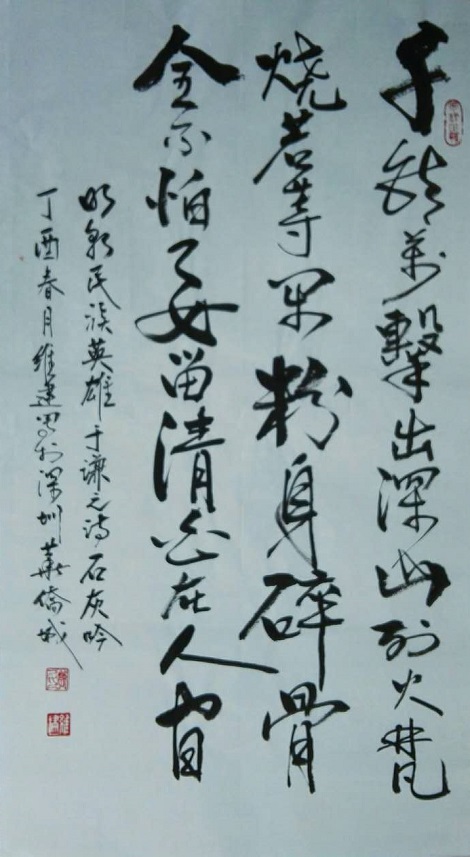 千錘萬擊出深山烈火焚
烧若等闲粉身碎骨
全不怕要留清白在人间
明朝民族英雄于谦之诗石灰吟
丁酉春月维建书於深圳華僑城